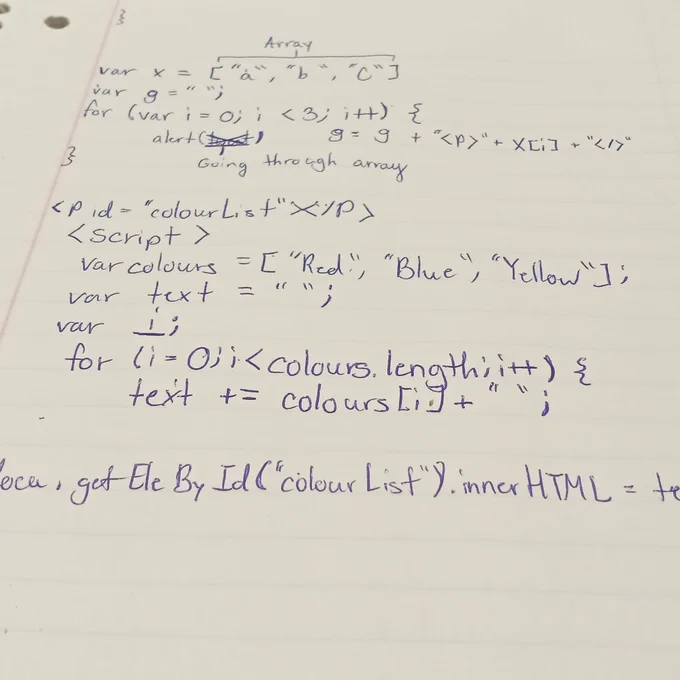 }
Array
var x = ["a", "b", "c"]
var g = " ";
for (var i = 0; i < 3; i++) {
alert( ) g = g + "<p>" + x[i] + "</>"
} Going through array
<p id = "colourList"></p>
<script>
var colours = ["Red", "Blue", "Yellow"];
var text = " ";
var i;
for (i = 0; i < colours.length; i++) {
text += colours[i] + " ";
ocu. getEleById("colourList").innerHTML = te